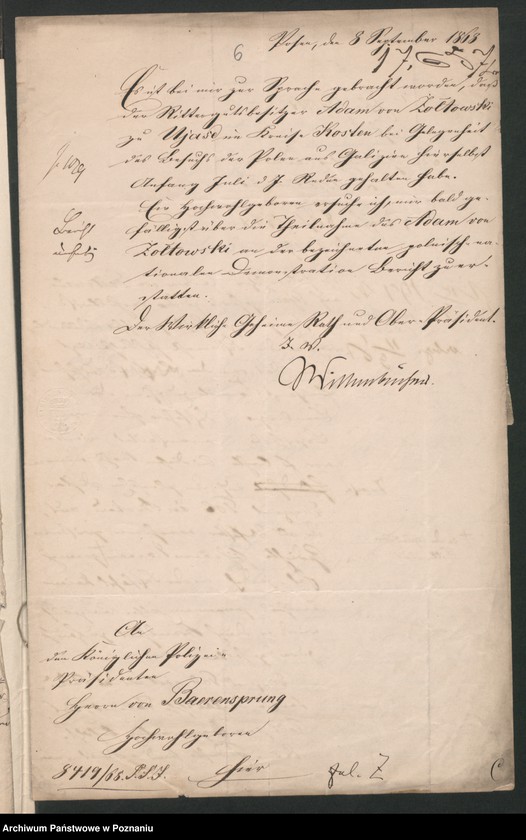 6
Posen, den 8 September 1868
Es ist bei mir zur Sprache gebracht worden, daß
der Rittergutsbesitzer Adam von Zoltowski
zu Ujazd im Kreise Kosten bei Gelegenheit
des Besuchs der Polen aus Galizien hierselbst
Anfang Juli d. J. Reden gehalten habe.
Ew Hochwohlgeboren ersuche ich, mir bald ge-
fälligst über die Theilnahme des Adam von
Zoltowski an der bezeichneten polnisch-na-
tionalen Demonstration Bericht zu er-
statten.
Der Wirkliche Geheime Rath und Ober-Präsident.
I. V.
An
den Königlichen Polizei-
Präsidenten
Herrn von Baerensprung
Hochwohlgeboren
8419/68. P.S.J. hier
Archiwum Państwowe w Poznaniu